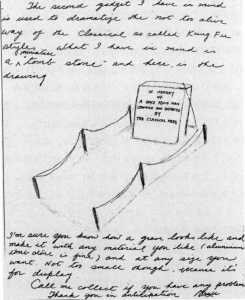 The second gadget I have in mind
is used to dramatize the not too alive
way of the classical so called Kung Fu
styles. What I have in mind is
miniature
a "tomb stone" and here is the
drawing
IN MEMORY OF
A ONCE FLUID MAN
CRAMMED AND DISTORTED
BY
THE CLASSICAL MESS
I'm sure you know how a grave looks like and
make it with any material you like (aluminum
tombstone is fine) and at any size you
want. Not too small though, because it's
for display.
Call me collect if you have any problem
Thank you in anticipation
Bruce